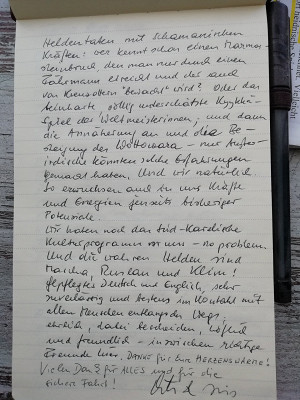 Heldentaten mit schamanischen
Kräften: wer kennt schon einen Marmor-
steinbruch, den man nur durch einen
Fährmann erreicht und der auch
von Kreuzottern "bewacht" wird? Oder das
beinharte völlig unterschätzte Kyykkä-
Spiel der Weltmeisterinnen; und dann
die Annäherung an und die Be-
steigung der Wottovaara - nur Außer-
irdische könnten solche Erfahrungen
gemacht haben. Und wir natürlich.
So erwuchsen auch in uns Kräfte
und Energien jenseits bisheriger
Potenziale.
Wir haben noch das Süd-Karelische
Kulturprogramm vor uns - no problem.
Und die wahren Helden sind
Mascha, Ruslan und Klim!
gepflegtes Deutsch und Englisch, sehr
zuverlässig und bestens im Kontakt mit
allen Menschen entlang des Wegs,
ehrlich, dabei bescheiden, höflich
und freundlich - inzwischen richtige
Freunde hier. DANKE für Eure HERZENSWÄRME!
Vielen Dank für ALLES und für die
sichere Fahrt!